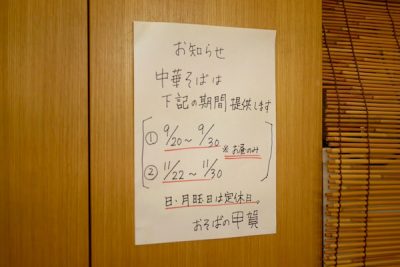 お知らせ
中華そばは
下記の期間提供します
① 9/20〜9/30 ※お昼のみ
② 11/22〜11/30
日・月曜日は定休日。
おそばの甲賀